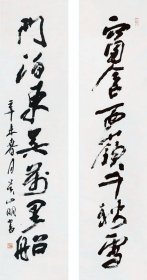 窗含西嶺千秋雪
門泊東吳萬里船
春月吳山明書